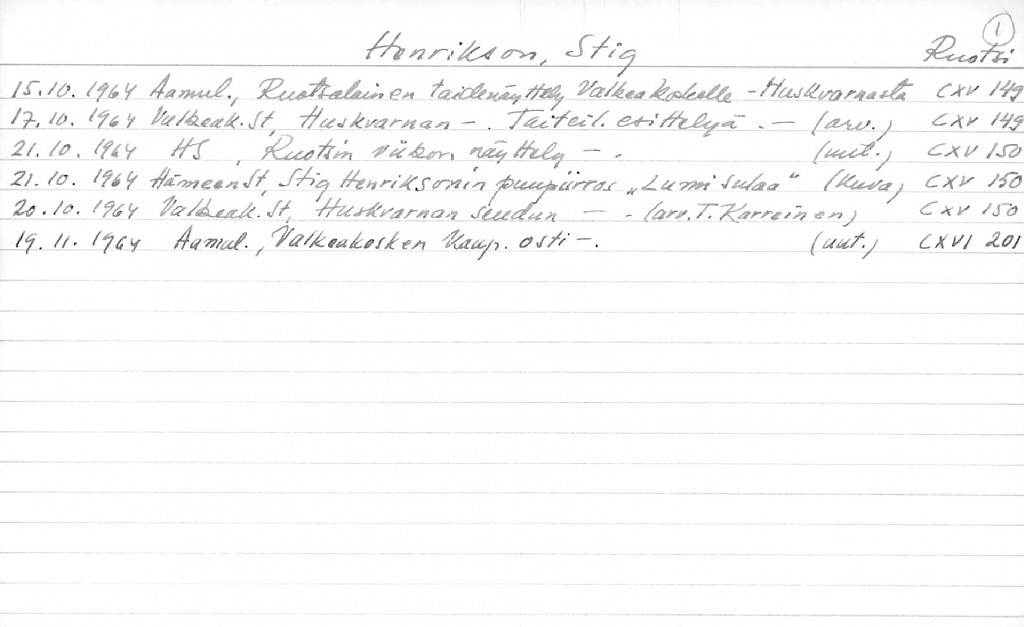 1
Henrikson, Stig Ruotsi
15.10.1964 Aamul., Ruotsalainen taidenäyttely Valkeakoskelle - Huskvarnasta CXV 149
17.10.1964 Valkeak.St, Huskvarnan - . Taiteil. esittelyä . - (arv.) CXV 149
21.10.1964 HS, Ruotsin viikon näyttely - . (uut.) CXV 150
21.10.1964 HämeenSt, Stig Henriksonin puupiirros „Lumi sulaa" (kuva) CXV 150
20.10.1964 Valkeak.St, Huskvarnan seudun - . (arv. T. Karreinen) CXV 150
19.11.1964 Aamul., Valkeakosken kaup. osti - . (uut.) CXVI 201